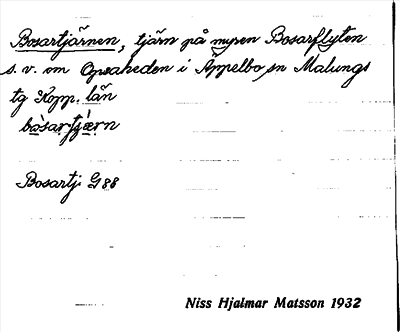 Bosartjärnen, tjärn på myren Bosarflyten
s.v. om Opsaheden i Äppelbo sn Malungs
tg Kopp. län
bòsartjæ̀rn
Bosartj. G 88
Niss Hjalmar Matsson 1932